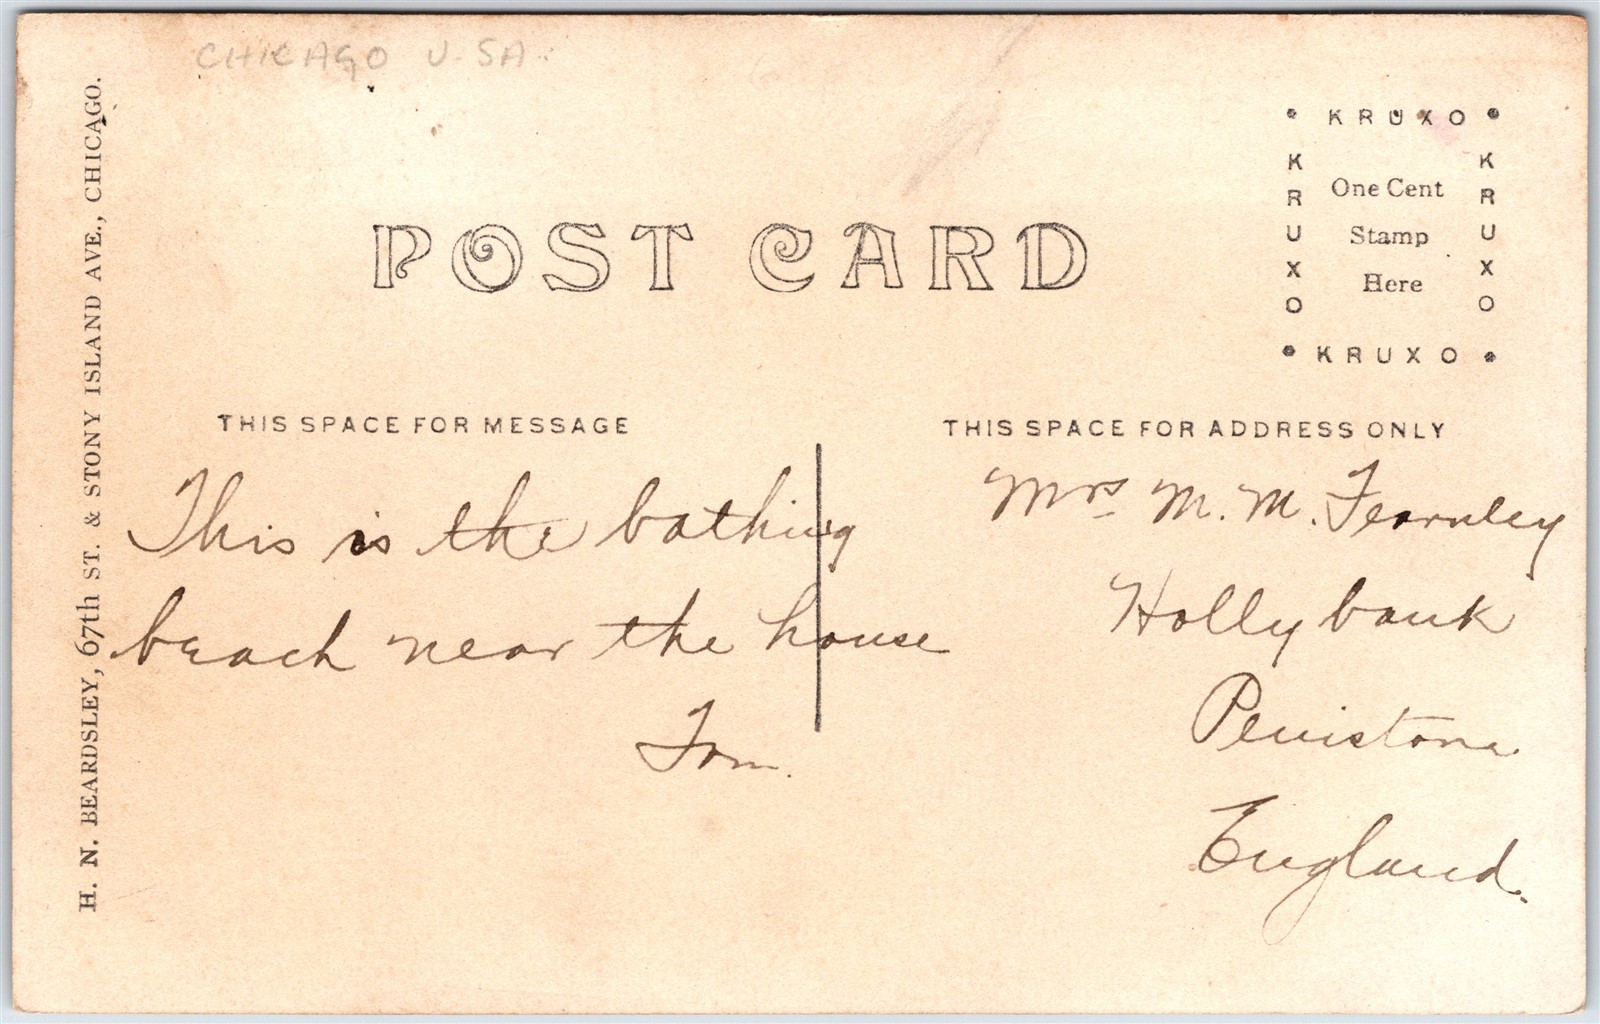 CHICAGO U.SA
H. N. BEARDSLEY, 67th ST. & STONY ISLAND AVE., CHICAGO.
POST CARD
• KRUXO •
KRUXO
One Cent
Stamp
Here
KRUXO
• KRUXO •
THIS SPACE FOR MESSAGE
This is the bathing
beach near the house
Tom.
THIS SPACE FOR ADDRESS ONLY
Mrs M. M. Fearnley
Holly bank
Penistone
England.